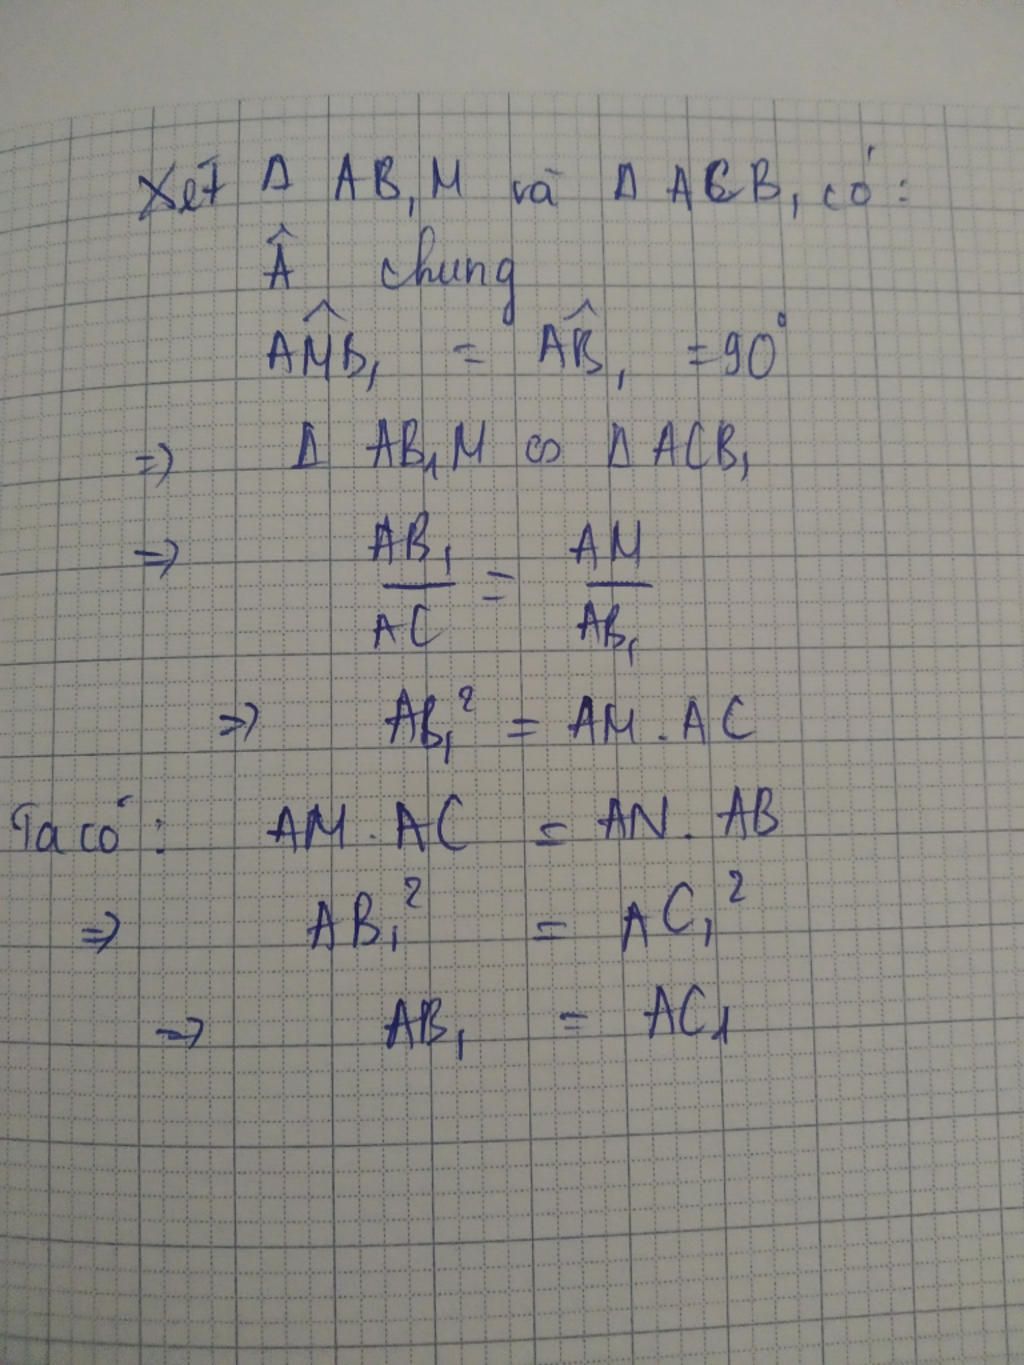 Xét Δ AB₁M và Δ ACB₁ có:
Â chung
AM̂B₁ = AB̂₁ = 90°
=> Δ AB₁M ∽ Δ ACB₁
=> AB₁/AC = AM/AB₁
=> AB₁² = AM . AC
Ta có: AM . AC = AN . AB
=> AB₁² = AC₁²
=> AB₁ = AC₁